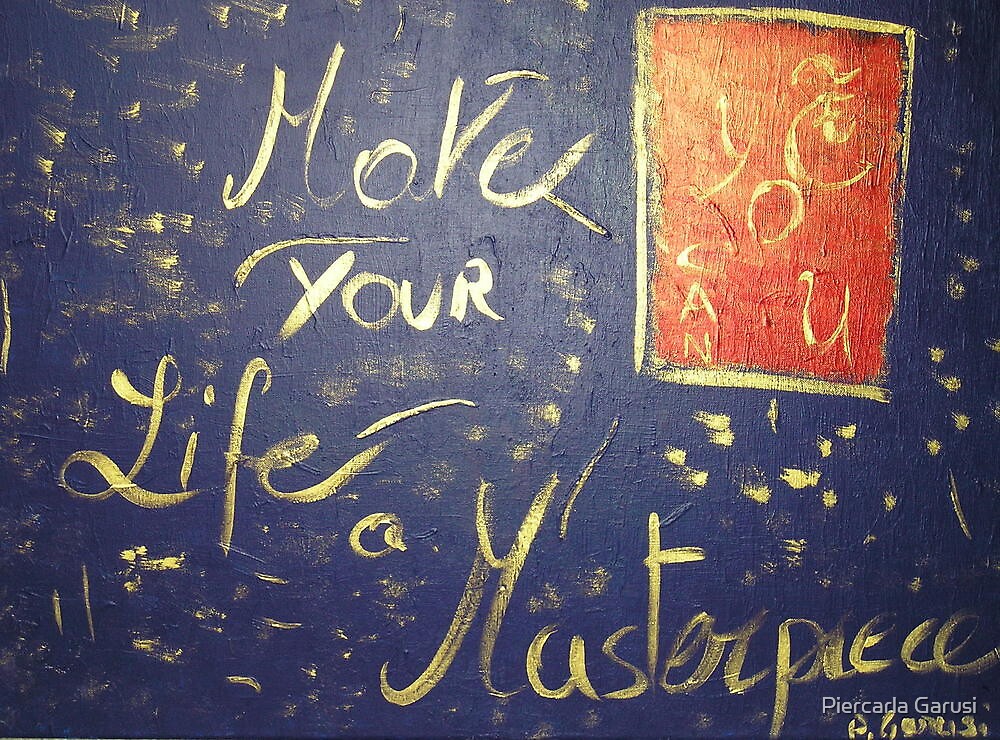 Make
YOUR
Life
a
Masterpiece
YOU
CAN
Piercarla Garusi
P. Garusi.